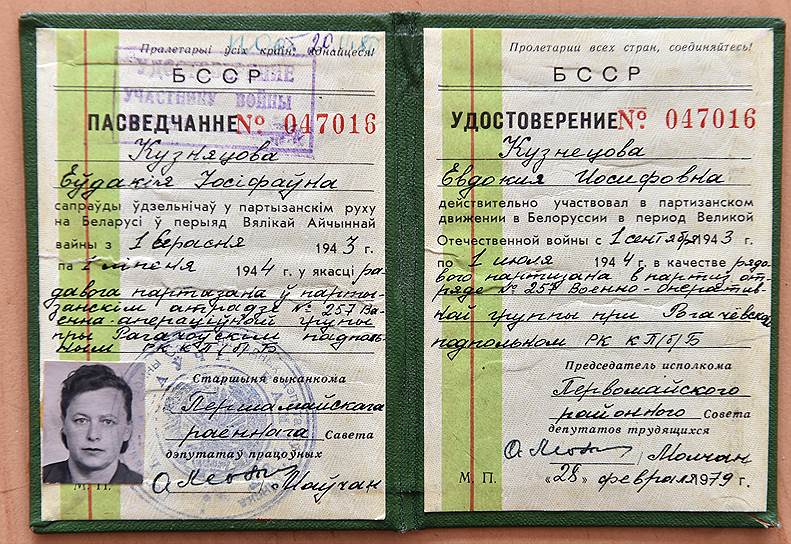 Пралетарыі ўсіх краін, яднайцеся!
БССР
УДОСТОВЕРЕНИЕ
УЧАСТНИКУ ВОЙНЫ
ПАСВЕДЧАННЕ № 047016
Кузняцова
Еўдакія Іосіфаўна
сапраўды ўдзельнічаў у партызанскім руху
на Беларусі ў перыяд Вялікай Айчыннай
вайны з 1 верасня 1943 г.
па 1 ліпеня 1944 г. у якасці ра-
давога партызана ў парты-
занскім атрадзе № 257 Ва-
енна-аперацыўнай групы
пры Рагачоўскім падполь-
ным РК КП/б/Б
Старшыня выканкома
Першамайскага
раённага Савета
дэпутатаў працоўных
Маўчан
М. П.
Пролетарии всех стран, соединяйтесь!
БССР
УДОСТОВЕРЕНИЕ № 047016
Кузнецова
Евдокия Иосифовна
действительно участвовал в партизанском
движении в Белоруссии в период Великой
Отечественной войны с 1 сентября 1943 г.
по 1 июля 1944 г. в качестве рядо-
вого партизана в партиз. от-
ряде № 257 Военно-оператив-
ной группы при Рогачёвском
подпольном РК КП/б/Б
Председатель исполкома
Первомайского
районного Совета
депутатов трудящихся
Молчан
М. П. «28» февраля 1979 г.